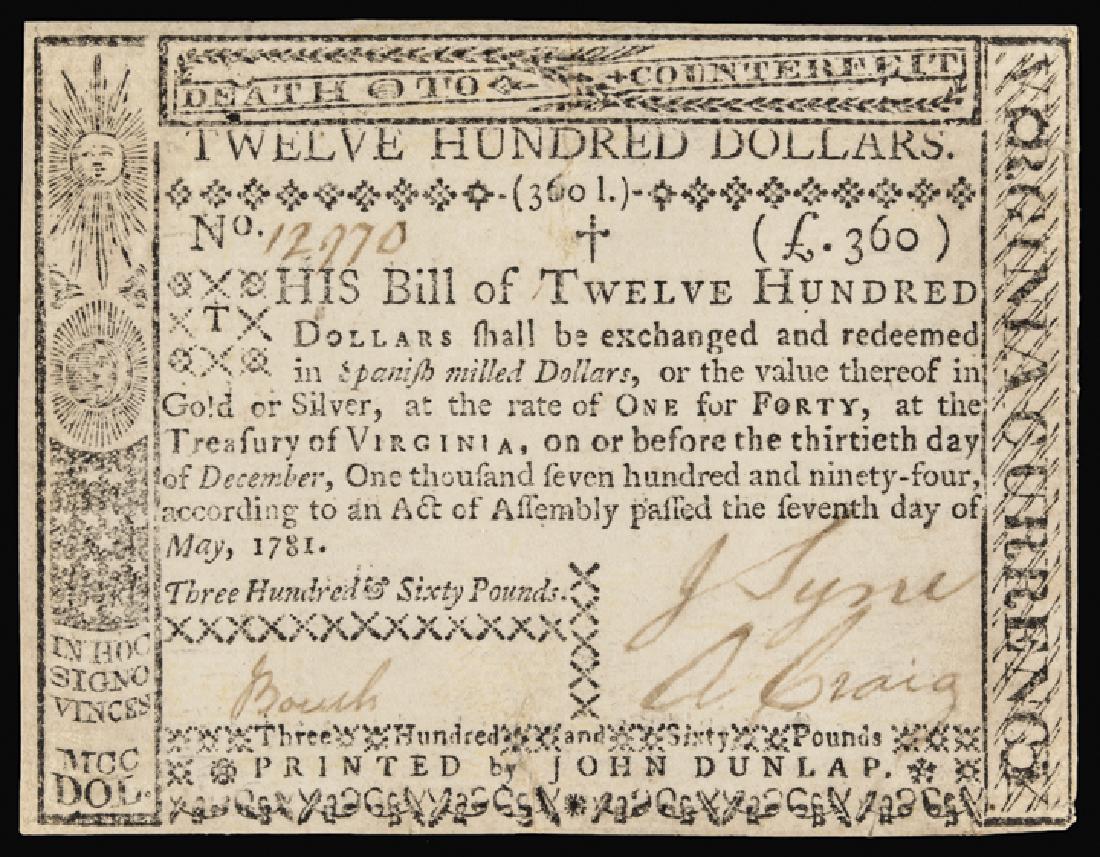 DEATH TO COUNTERFEIT
TWELVE HUNDRED DOLLARS.
(360 l.)
No. 12970 (£.360)
THIS Bill of TWELVE HUNDRED
DOLLARS ſhall be exchanged and redeemed
in Spaniſh milled Dollars, or the value thereof in
Gold or Silver, at the rate of ONE for FORTY, at the
Treaſury of VIRGINIA, on or before the thirtieth day
of December, One thouſand ſeven hundred and ninety-four,
according to an Act of Aſſembly paſſed the ſeventh day of
May, 1781.
Three Hundred & Sixty Pounds.
J Syme
A Craig
Boush
Three Hundred and Sixty Pounds
PRINTED by JOHN DUNLAP.
IN HOC
SIGNO
VINCES
MCC
DOL.
VIRGINIA CURRENCY